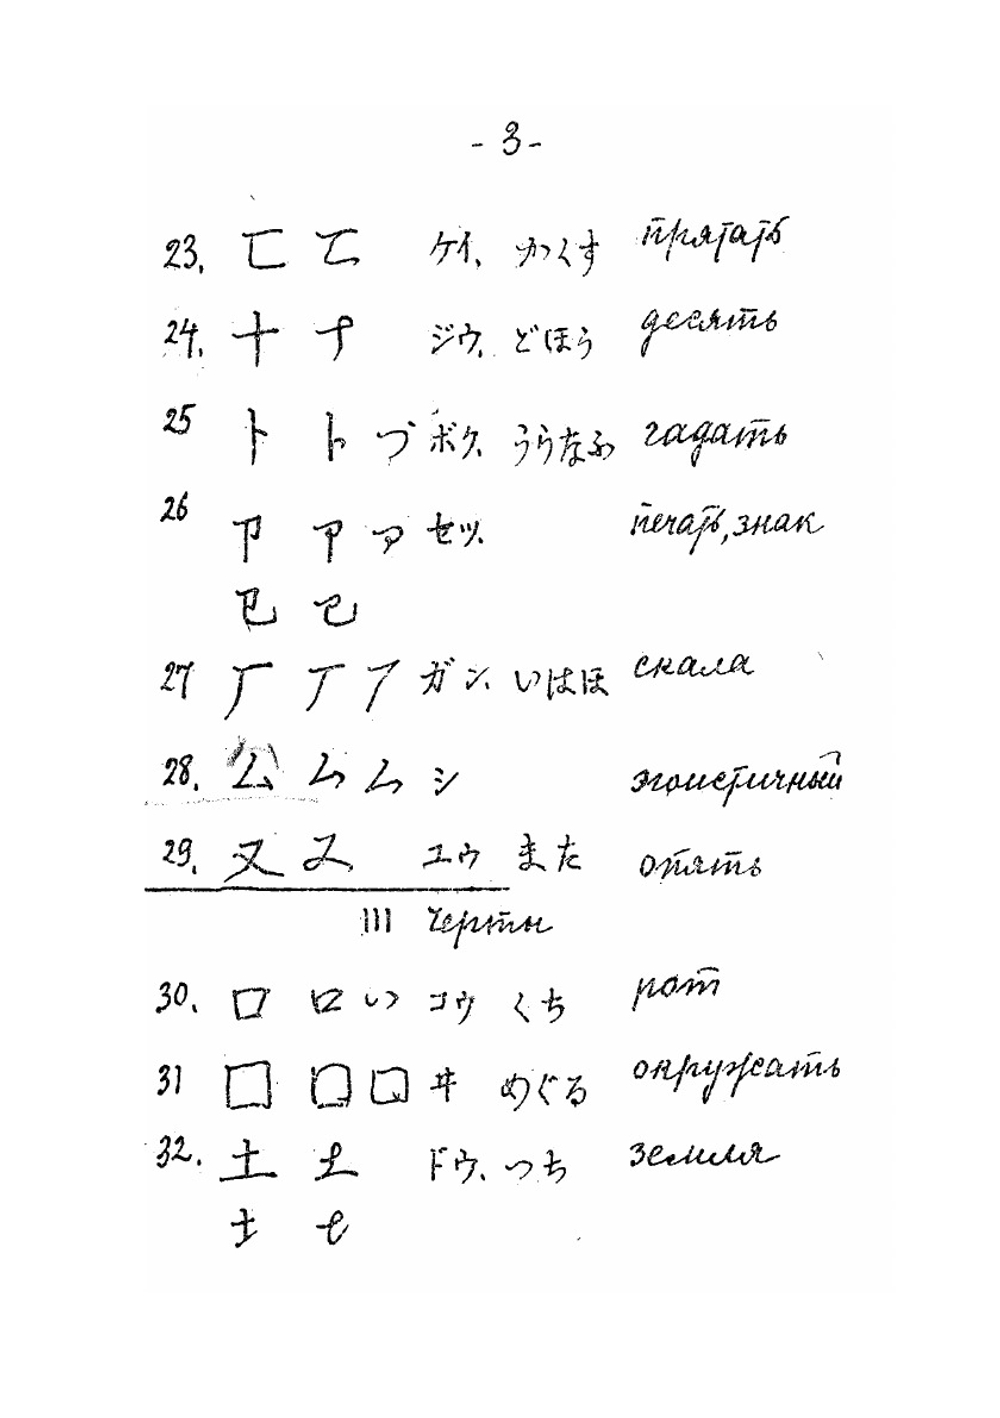 - 3 -
23. 匸 匸 ケイ、 かくす прятать
24. 十 十 ジウ、 どほう десять
25 卜 卜 づ ボク、 うらなふ гадать
26 卩 卩 マ セツ、 печать, знак
㔾 㔾
27 厂 厂 厂 ガン、 いはほ скала
28. 厶 厶 厶 シ эгоистичный
29. 又 又 ユウ また опять
III Черты
30. 口 口 い コウ くち рот
31 囗 囗 囗 ヰ めぐる окружать
32. 土 土 ドウ、 つち земля
土 土